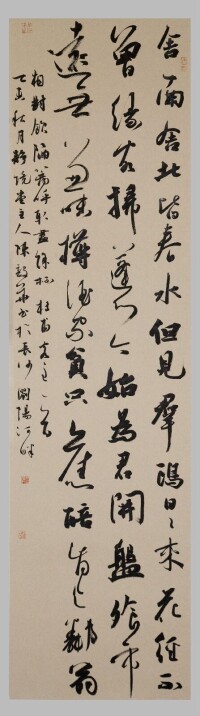 舍南舍北皆春水但見羣鷗日々來花徑不
曾緣客掃蓬門今始為君開盤飧市
遠無兼味樽酒家貧只舊醅肯與鄰翁
相對飲隔籬呼取盡餘杯 杜甫客至一首
丁亥秋月主人陳書於長沙瀏陽河畔